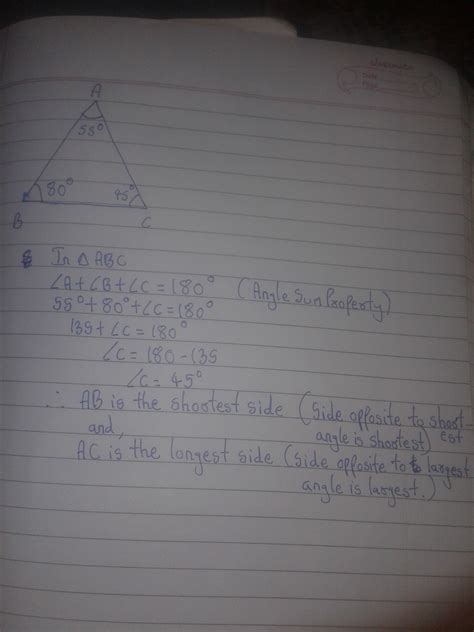 classmate
Date
Page
A
55°
80°
45°
B
C
In △ ABC
∠A+∠B+∠C = 180° (Angle Sum Property)
55°+80°+∠C = 180°
135+∠C = 180°
∠C = 180 - 135
∠C = 45°
∴ AB is the shortest side (Side opposite to short-est
and, angle is shortest)
AC is the longest side (Side opposite to largest
angle is largest.)